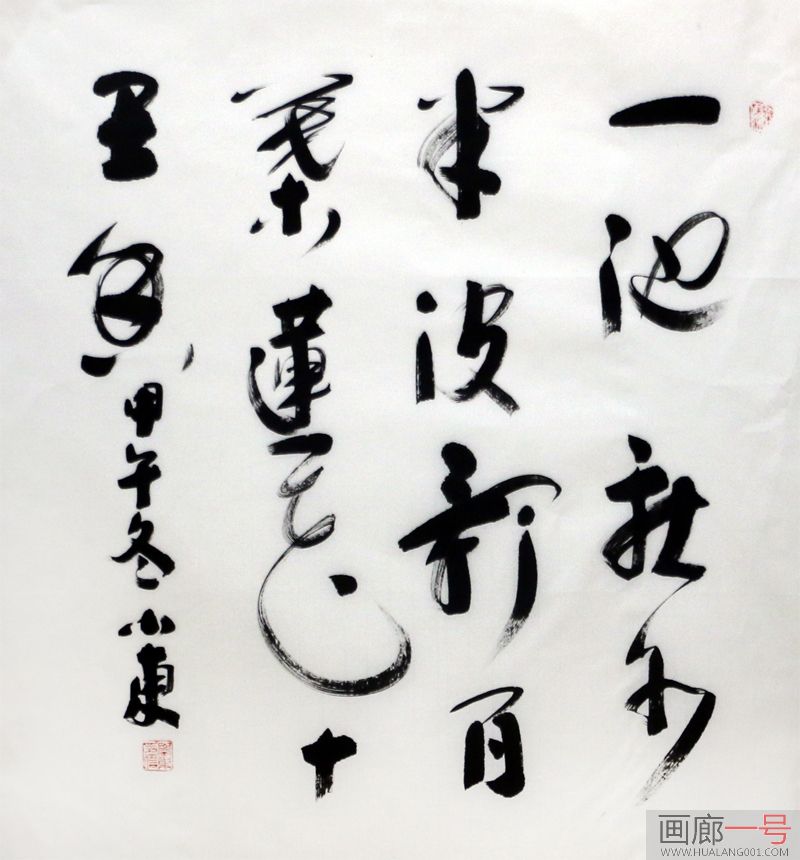 一池秋水
半波影百
葉蓮花十
里香
甲午冬 小東
画廊一号
WWW.HUALANG001.COM